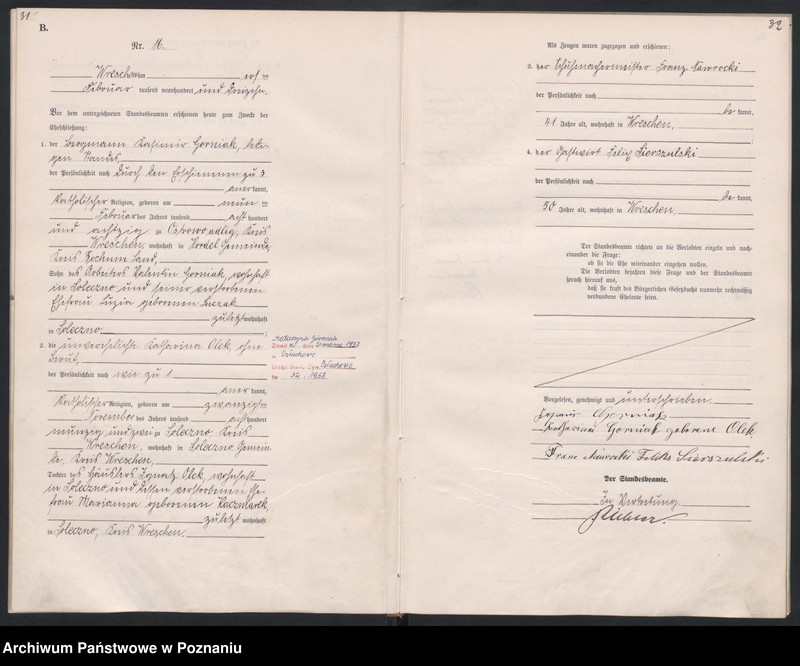 31
B.
Nr. 11.
Wreschen am elften
Februar tausend neunhundert und dreizehn.
Vor dem unterzeichneten Standesbeamten erschienen heute zum Zwecke der
Eheschließung:
1. der Bergmann Kasimir Gorniak, ledi-
gen Standes
der Persönlichkeit nach durch den Erschienenen zu 3
anerkannt,
katholischer Religion, geboren am
Februar des Jahres tausend acht hundert
und achtzig zu Ostrowo adlig, Kreis
Wreschen, wohnhaft in Hordel Gemeinde,
Kreis Bochum Land,
Sohn des Arbeiters Valentin Gorniak, wohnhaft
in Solezno und seiner verstorbenen
Ehefrau Luzia geborenen
zuletzt wohnhaft
in Solezno
2. die unverehelichte Katharina Olek, ohne
Beruf,
der Persönlichkeit nach wie zu 1
anerkannt,
katholischer Religion, geboren am zwanzigsten
November des Jahres tausend achthundert
neunzig und zwei zu Solezno Kreis
Wreschen, wohnhaft in Solezno Gemein-
de, Kreis Wreschen,
Tochter des Häuslers Ignatz Olek, wohnhaft
in Solezno und dessen verstorbenen Ehe-
frau Marianna geborenen Kaczmarek,
zuletzt wohnhaft
in Solezno, Kreis Wreschen.
Katarzyna Górniak
Zmarł dnia 1953
w
Urząd Stanu Cyw.
Nr 32 / 1953
32
Als Zeugen waren zugezogen und erschienen:
3. der Schuhmachermeister Franz Nawrocki
der Persönlichkeit nach
be kannt,
41 Jahre alt, wohnhaft in Wreschen,
4. der Gastwirt Felix Sierszulski
der Persönlichkeit nach
be kannt,
50 Jahre alt, wohnhaft in Wreschen,
Der Standesbeamte richtete an die Verlobten einzeln und nach-
einander die Frage:
ob sie die Ehe miteinander eingehen wollen.
Die Verlobten bejahten diese Frage und der Standesbeamte
sprach hierauf aus,
daß sie kraft des Bürgerlichen Gesetzbuchs nunmehr rechtmäßig
verbundene Eheleute seien.
Vorgelesen, genehmigt und unterschrieben.
Gorniak
Katharina Gorniak geborene Olek.
Franz Nawrocki Feliks Sierszulski
Der Standesbeamte.
In Vertretung
Archiwum Państwowe w Poznaniu